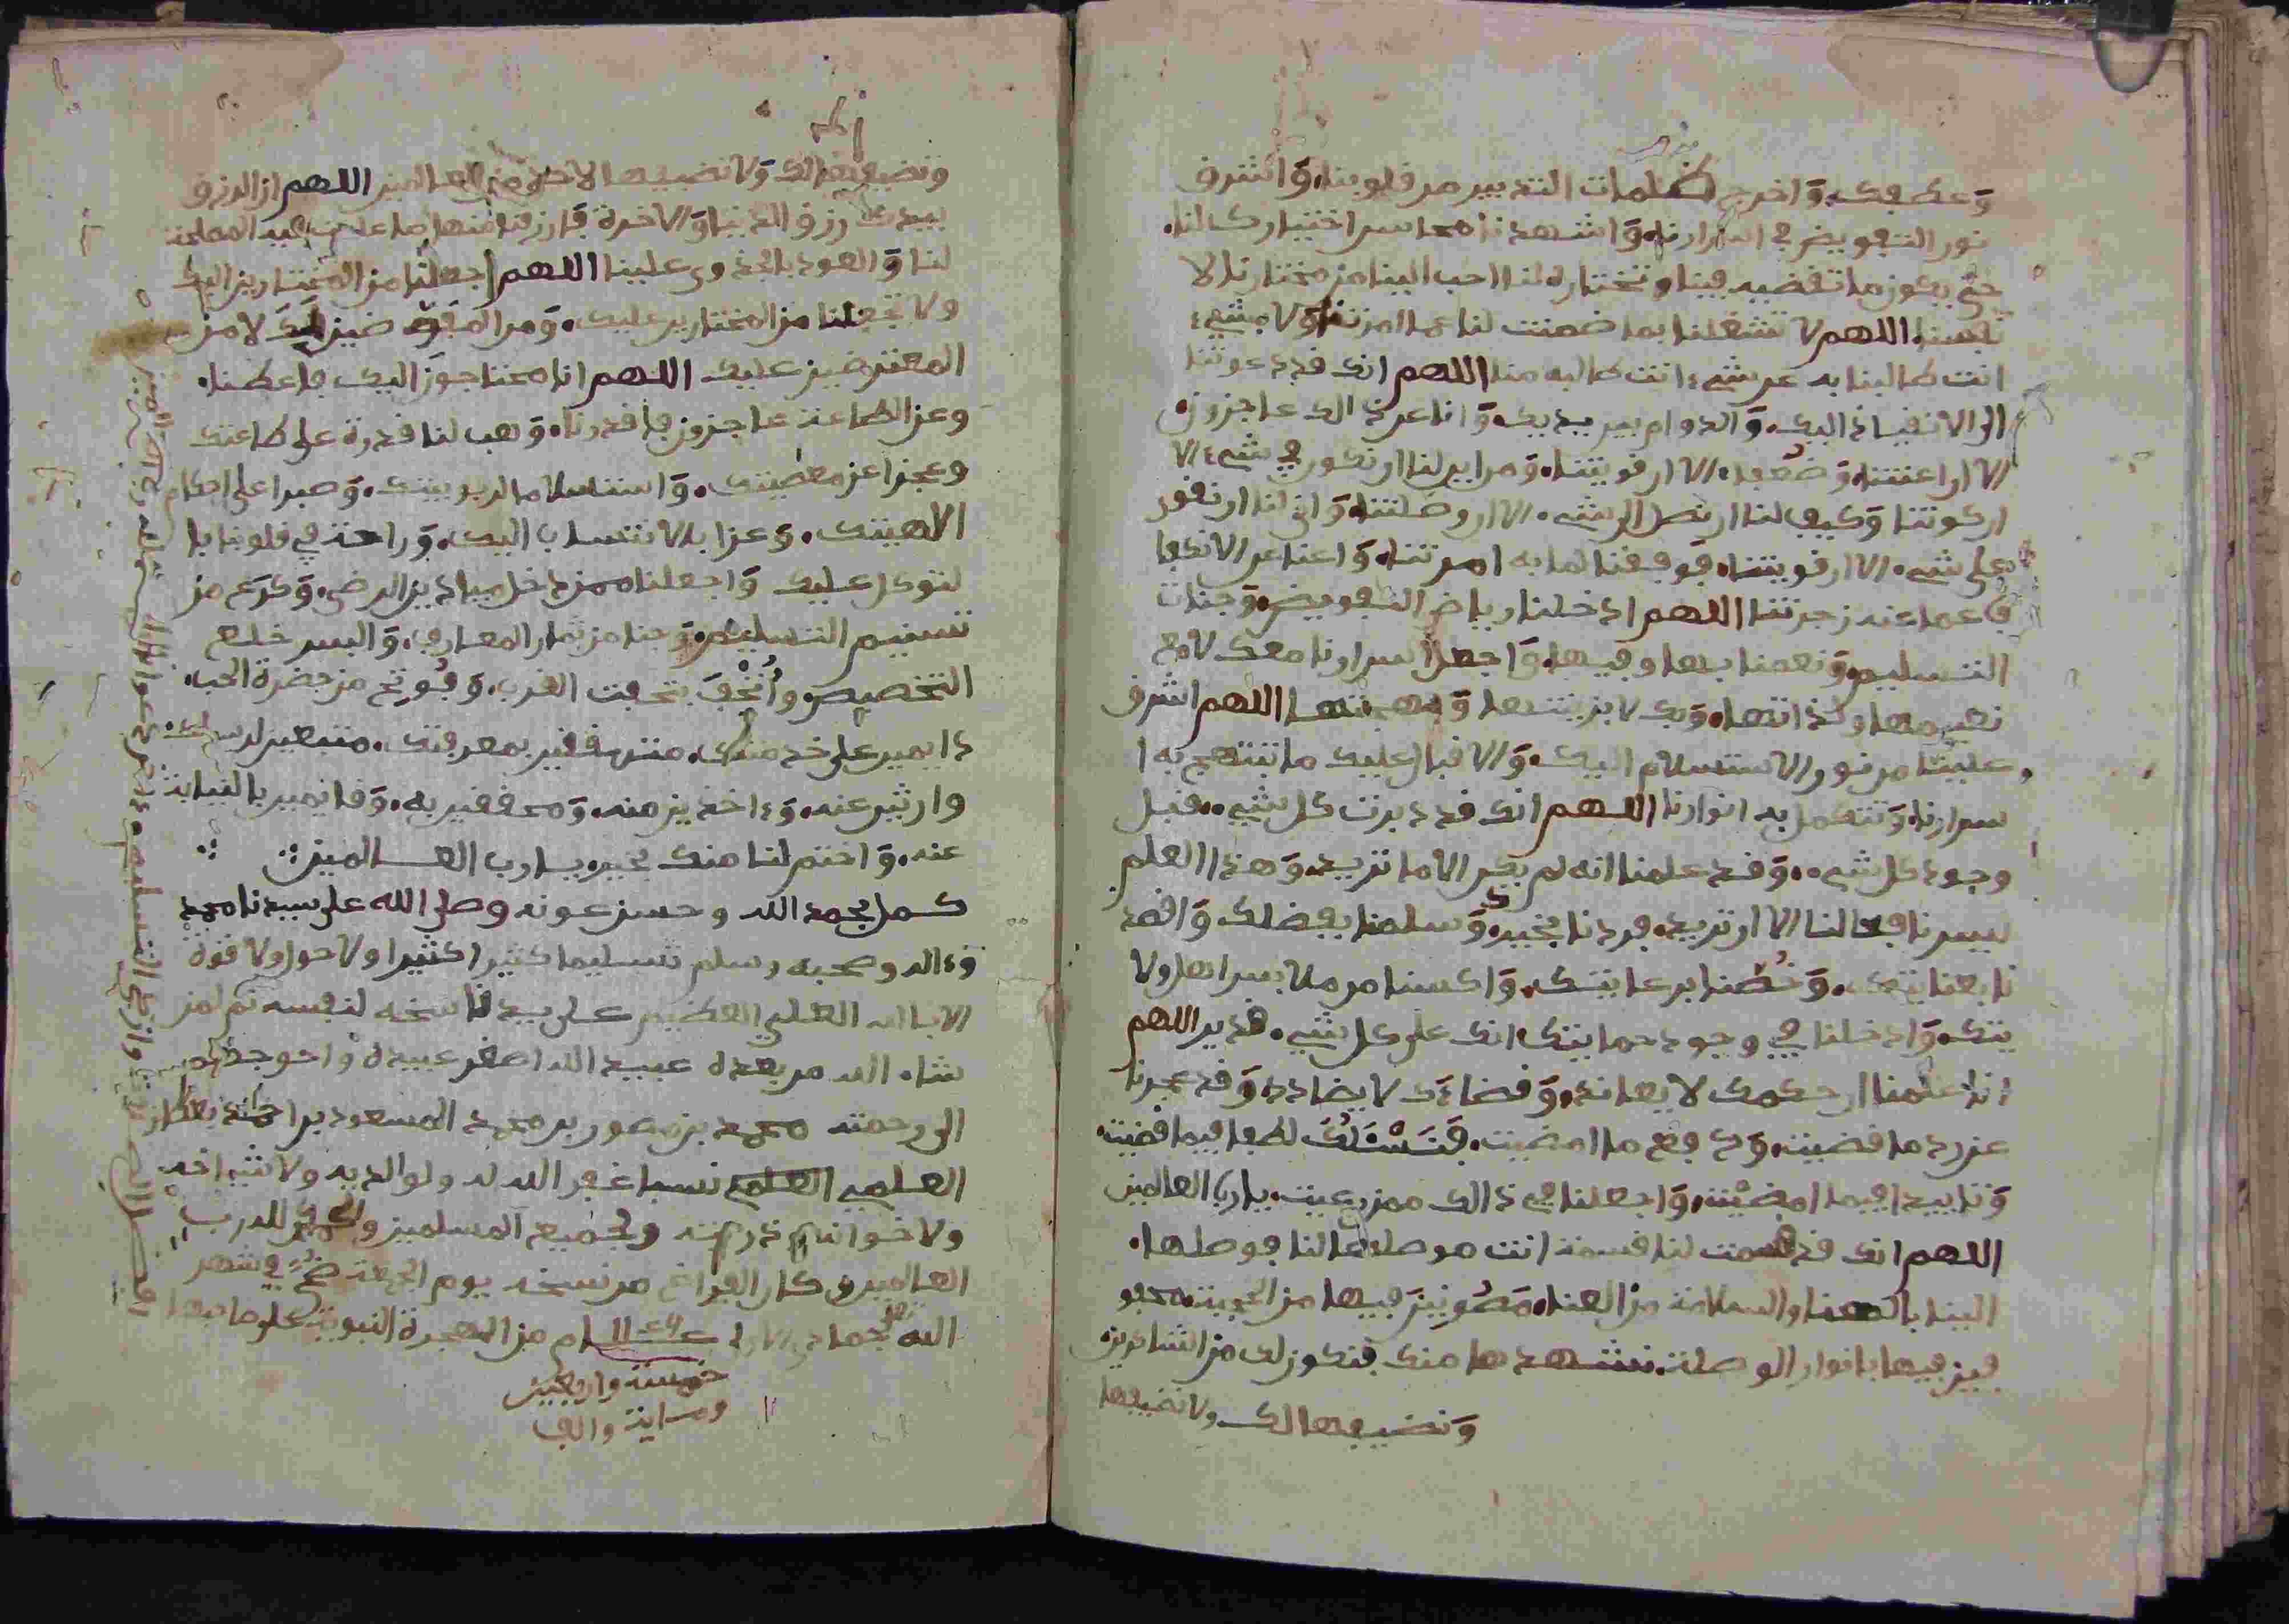 وعطفك، واخرج ظلمات التدبير من قلوبنا، واشرق
نور التفويض في اسرارنا، واشهدنا محاسن اختيارك لنا،
حتى يكون ما تقضيه فينا وتختاره لنا احب الينا من مختارنا لا
نفسنا، اللهم لا تشغلنا بما ضمنت لنا عما امرتنا ولا بشيء
انت طالبنا به عن شيء انت طالبه منا اللهم انك قد دعوتنا
الى الانقياد اليك، والدوام بين يديك، وانا عن ذالك عاجزون،
الا ان اعنتنا، وضعفاء الا ان قويتنا، ومن اين لنا ان نكون في شيء الا
ان كونتنا وكيف لنا ان نصل الى شيء، الا ان وصلتنا، وانى لنا ان نقوى
على شيء، الا ان قويتنا، فوفقنا لما به امرتنا، واعنا على الانكفا
ف عما عنه زجرتنا اللهم ادخلنا رياض التفويض، وجنات
التسليم، ونعمنا بها وفيها، واجعل اسرارنا معك لا مع
نعيمها ولذاتها، وبك لا بزينتها وبهجتها اللهم اشرق
علينا من نور الاستسلام اليك، والاقبال عليك ما تبتهج به ا
سرارنا، وتتكمل به انوارنا اللهم انك قد دبرت كل شيء، قبل
وجود كل شيء، وقد علمنا انه لم يكن الا ما تريد، وهذا العلم
ليس نافعا لنا الا ان تريد، فردنا بخيرك، وسلمنا بفضلك واقصد
نا بعنايتك، وخصنا برعايتك، واكسنا من ملابس اهل ولا
يتك، وادخلنا في وجود حمايتك، انك على كل شيء، قدير اللهم
انا علمنا ان حكمك لا يعاند، وقضاءك لا يضادد، وقد عجزنا
عن رد ما قضيت، ودفع ما امضيت، فنسئلك لطفا فيما قضيت،
وتاييدا فيما امضيت، واجعلنا في ذالك ممن رعيت، يا رب العالمين
اللهم انك قد قسمت لنا قسمة انت موصلها لنا فوصلها،
الينا بالهنا والسلامة من العنا، مصونين فيها من الحجبة، محفو
فين فيها بانوار الوصلة، نشهدها منك فنكون لك من الشاكرين،
ونضيفها لك ولا نضيفها
ونضيفها لك ولا نضيفها لاحد من العالمين اللهم ان الرزق
بيدك رزق الدنيا والاخرة فارزقنا منهما ما علمت فيه المصلحة
لنا والعود بالجدوى علينا اللهم اجعلنا من المختارين اليك
ولا تجعلنا من المختارين عليك، ومن المفوضين لك لا من
المعترضين عليك اللهم انا محتاجون اليك فاعطنا،
وعن الطاعة عاجزون فاقدرنا، وهب لنا قدرة على طاعتك
وعجزا عن معصيتك، واستسلاما لربوبيتك، وصبرا على احكام
الاهيتك، وعزا بالانتساب اليك، وراحة في قلوبنا با
لتوكل عليك واجعلنا ممن دخل ميادين الرضى، وكرع من
تسنيم التسليم، وجنا من ثمار المعارف، والبس خلع
التخصيص، واتحف بتحفت القرب، وفوتح من حضرة الحب،
دايمين على خدمتك، متحققين بمعرفتك، متبعين لرسولك،
وارثين عنه، وءاخذين منه، ومحققين به، وقايمين بالنيابة
عنه، واختم لنا منك بخير، يا رب العالمين
كمل بحمد الله وحسن عونه وصلى الله على سيدنا محمد
وءاله وصحبه وسلم تسليما كثيرا كثيرا ولا حول ولا قوة
الا بالله العلي العظيم على يد ناسخه لنفسه ثم لمن
شاء الله من بعده عبيد الله اصغر عبيده واحوجهم
الى رحمته محمد بن منصور بن محمد المسعود بن
العلمي نسبا غفر الله له ولوالديه ولاشياخه
ولاخوانه وذريته ولجميع المسلمين والحمد لله رب
العالمين وكان الفراغ من نسخه يوم الجمعة ضحى في شهر
الله جمادى الاولى عام من الهجرة النبوية على صاحبها
خمسة واربعين
وماية والف